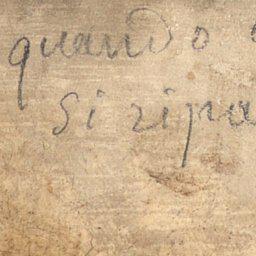 quando
Si ripa